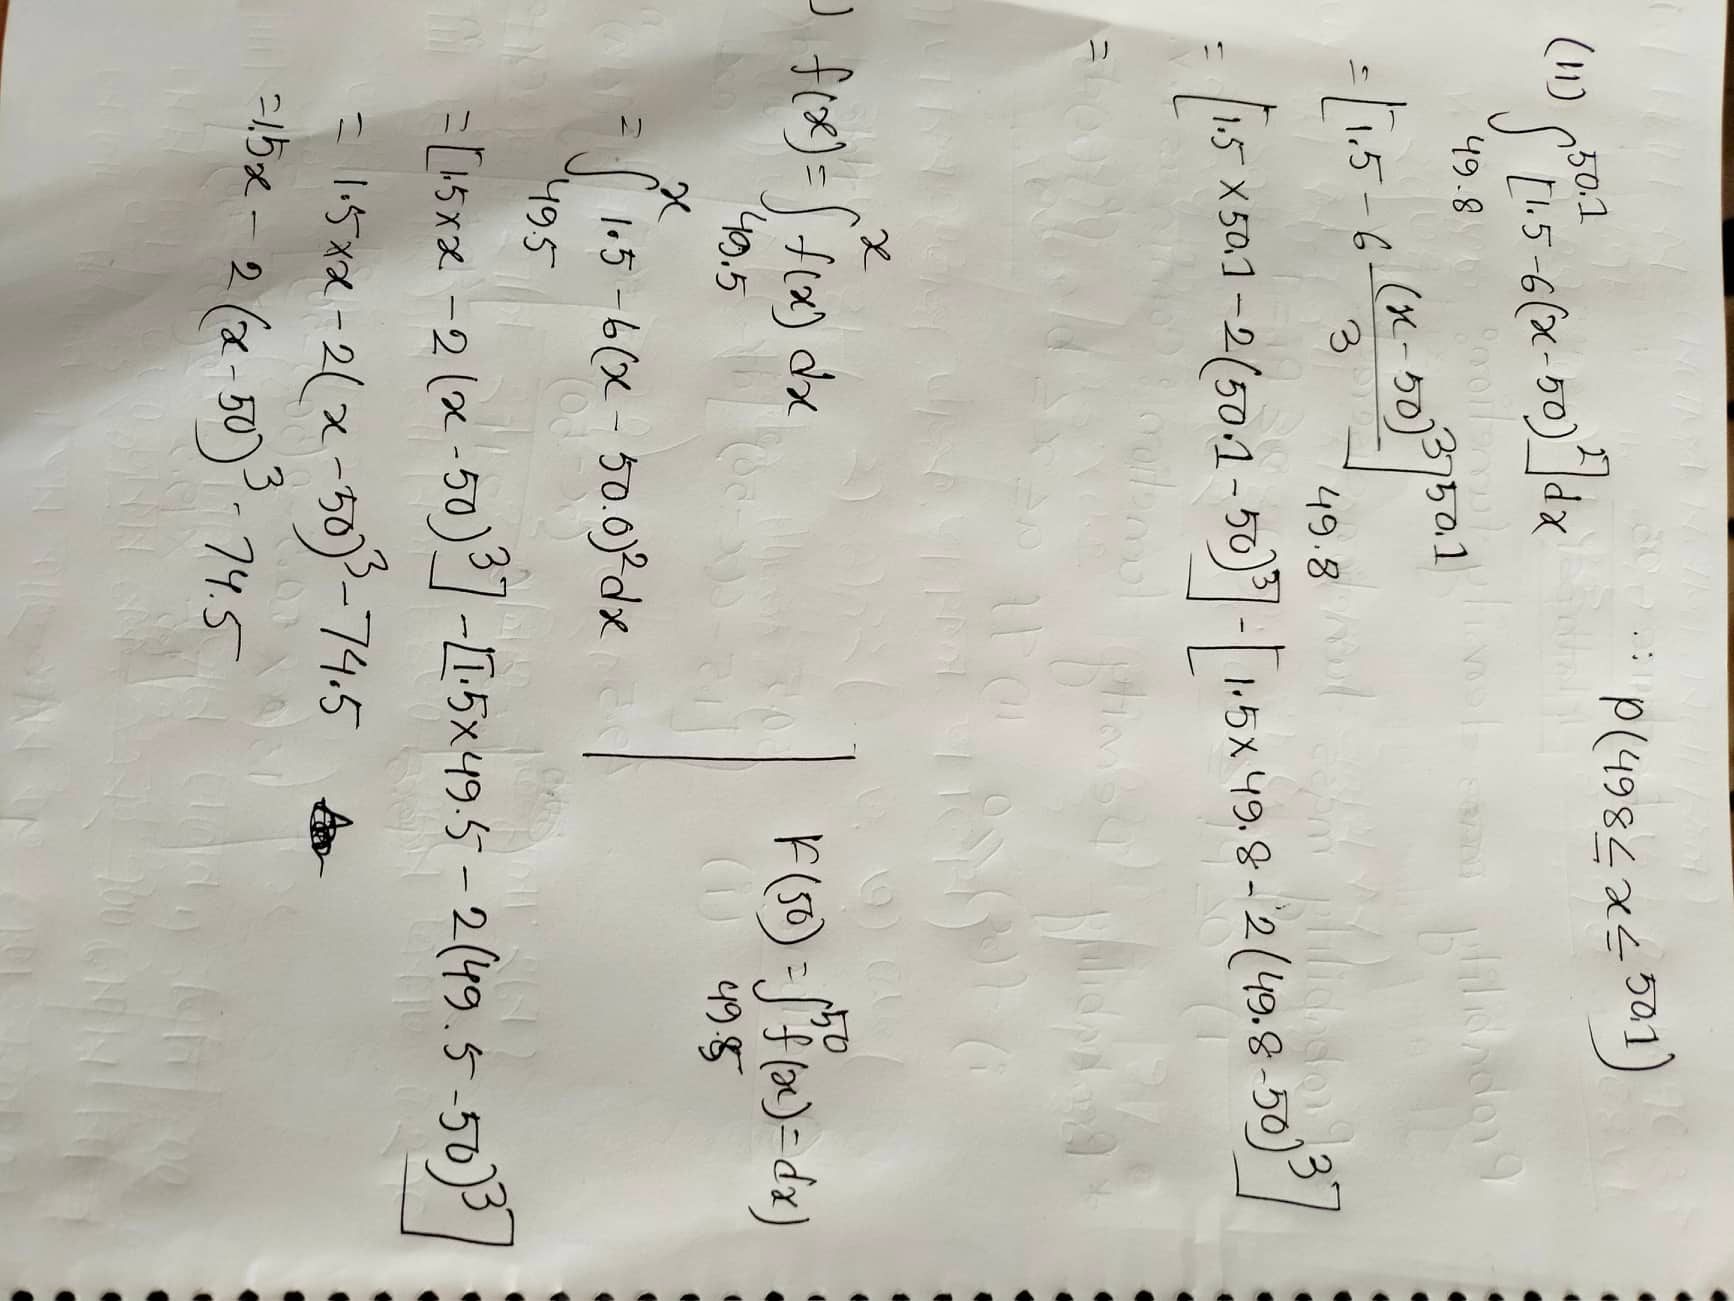 ∴ P(498 ≤ x ≤ 50.1)
(11) ∫_{49.8}^{50.1} [1.5-6(x-50)^2] dx
= [1.5 - 6 (x-50)^3/3]_{49.8}^{50.1}
= [1.5 × 50.1 - 2(50.1-50)^3] - [1.5 × 49.8 - 2(49.8-50)^3]
=
) f(x) = ∫_{49.5}^{x} f(x) dx
= ∫_{49.5}^{x} 1.5 - 6(x - 50.0)^2 dx
= [1.5 × x - 2(x-50)^3] - [1.5 × 49.5 - 2(49.5-50)^3]
= 1.5 × x - 2(x-50)^3 - 74.5
= 1.5x - 2(x-50)^3 - 74.5
F(50) = ∫_{49.5}^{50} f(x) = dx)